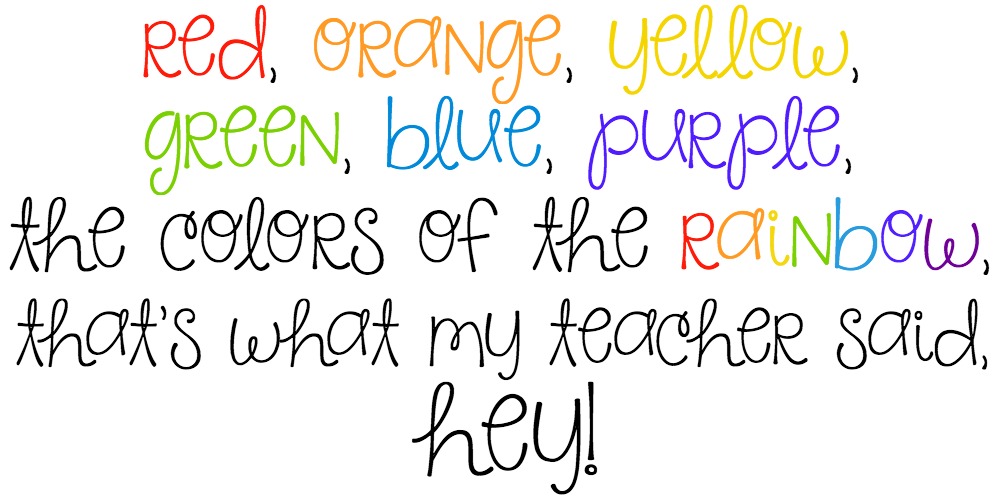 red, orange, yellow,
green, blue, purple,
the colors of the rainbow,
that's what my teacher said,
hey!